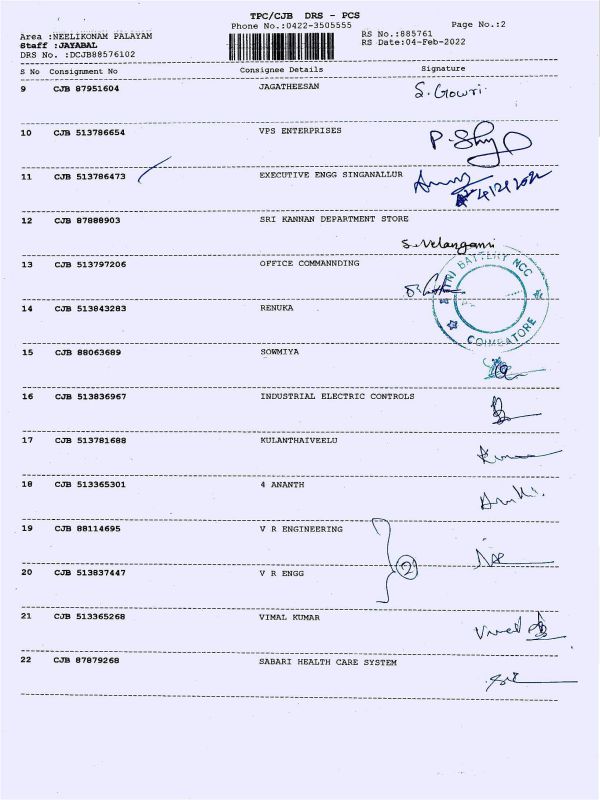 TPC/CJB DRS - PCS
Phone No.:0422-3505555
Page No.:2
Area :NEELIKONAM PALAYAM
RS No.:885761
Staff :JAYABAL
RS Date:04-Feb-2022
DRS No. :DCJB88576102
S No Consignment No Consignee Details Signature
9 CJB 87951604 JAGATHEESAN S. Gowri
10 CJB 513786654 VPS ENTERPRISES
11 CJB 513786473 EXECUTIVE ENGG SINGANALLUR
12 CJB 87888903 SRI KANNAN DEPARTMENT STORE
S. Velanganni
13 CJB 513797206 OFFICE COMMANNDING
BATTERY NCC
COIMBATORE
14 CJB 513843283 RENUKA
15 CJB 88063689 SOWMIYA
16 CJB 513836967 INDUSTRIAL ELECTRIC CONTROLS
17 CJB 513781688 KULANTHAIVEELU
18 CJB 513365301 4 ANANTH
19 CJB 88114695 V R ENGINEERING
2
20 CJB 513837447 V R ENGG
21 CJB 513365268 VIMAL KUMAR
22 CJB 87879268 SABARI HEALTH CARE SYSTEM